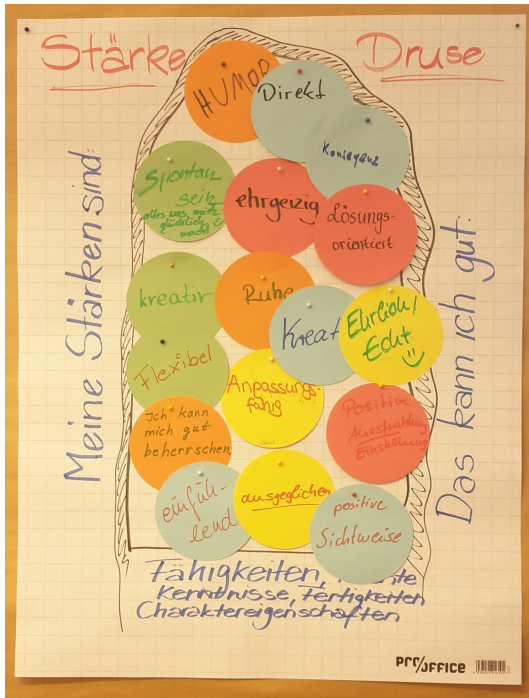 Stärke Druse
Meine Stärken sind:
Das kann ich gut:
HUMOR
Direkt
Konsequenz
Spontan
sein
alles was mich
glücklich
macht
ehrgeizig
Lösungs-
orientiert
kreativ
Ruhe
Kreat
Ehrlich/
Echt
Flexibel
Anpassungs-
fähig
Positive
Ausstrahlung
Einstellung
Ich kann
mich gut
beherrschen
einfüh-
lend
ausgeglichen
positive
Sichtweise
Fähigkeiten,
Kenntnisse, Fertigkeiten
Charaktereigenschaften
PRO/OFFICE